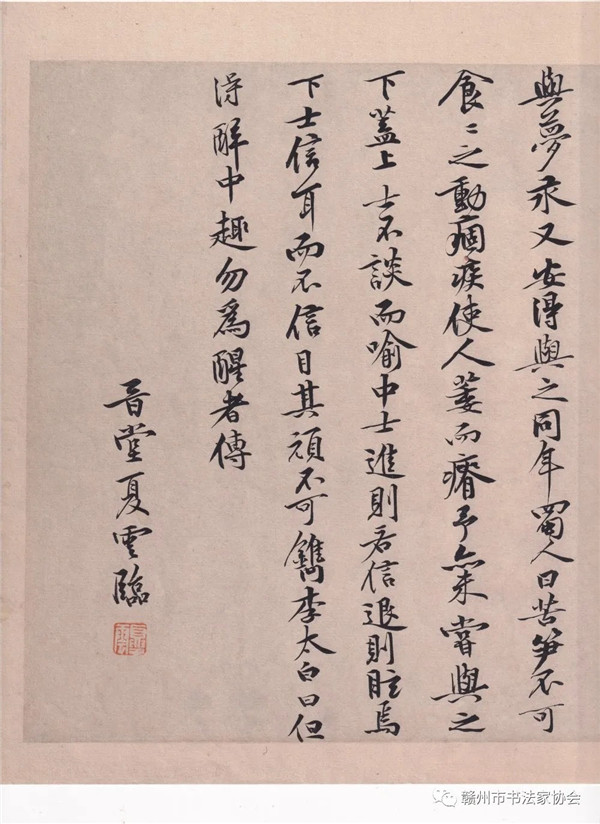 與夢汞又安得與之同年蜀人曰苦笋不可
食〻之動痼疾使人萎而瘠予亦未嘗與之
下蓋上士不談而喻中士進則若信退則眩焉
下士信耳而不信目其頑不可鐫李太白曰但
得醉中趣勿爲醒者傳
堂夏雲臨
赣州市书法家协会